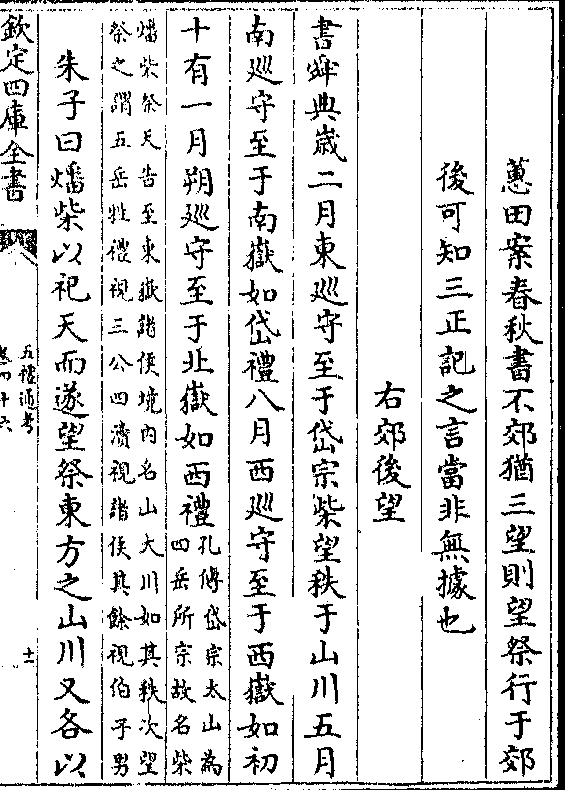 蕙田案春秋書不郊猶三望則望祭行于郊
後可知三正記之言當非無據也
右郊後望
書舜典歲二月東巡守至于岱宗柴望秩于山川五月
南巡守至于南嶽如岱禮八月西巡守至于西嶽如初
十有一月朔巡守至于北嶽如西禮
孔傳岱宗太山為
四岳所宗故名柴
燔柴祭天告至東嶽諸侯境內名山大川如其秩次望
祭之謂五岳牲禮視三公四瀆視諸侯其餘視伯子男
朱子曰燔柴以祀天而遂望祭東方之山川又各以
欽定四庫全書
五禮通考
卷四十六
十一